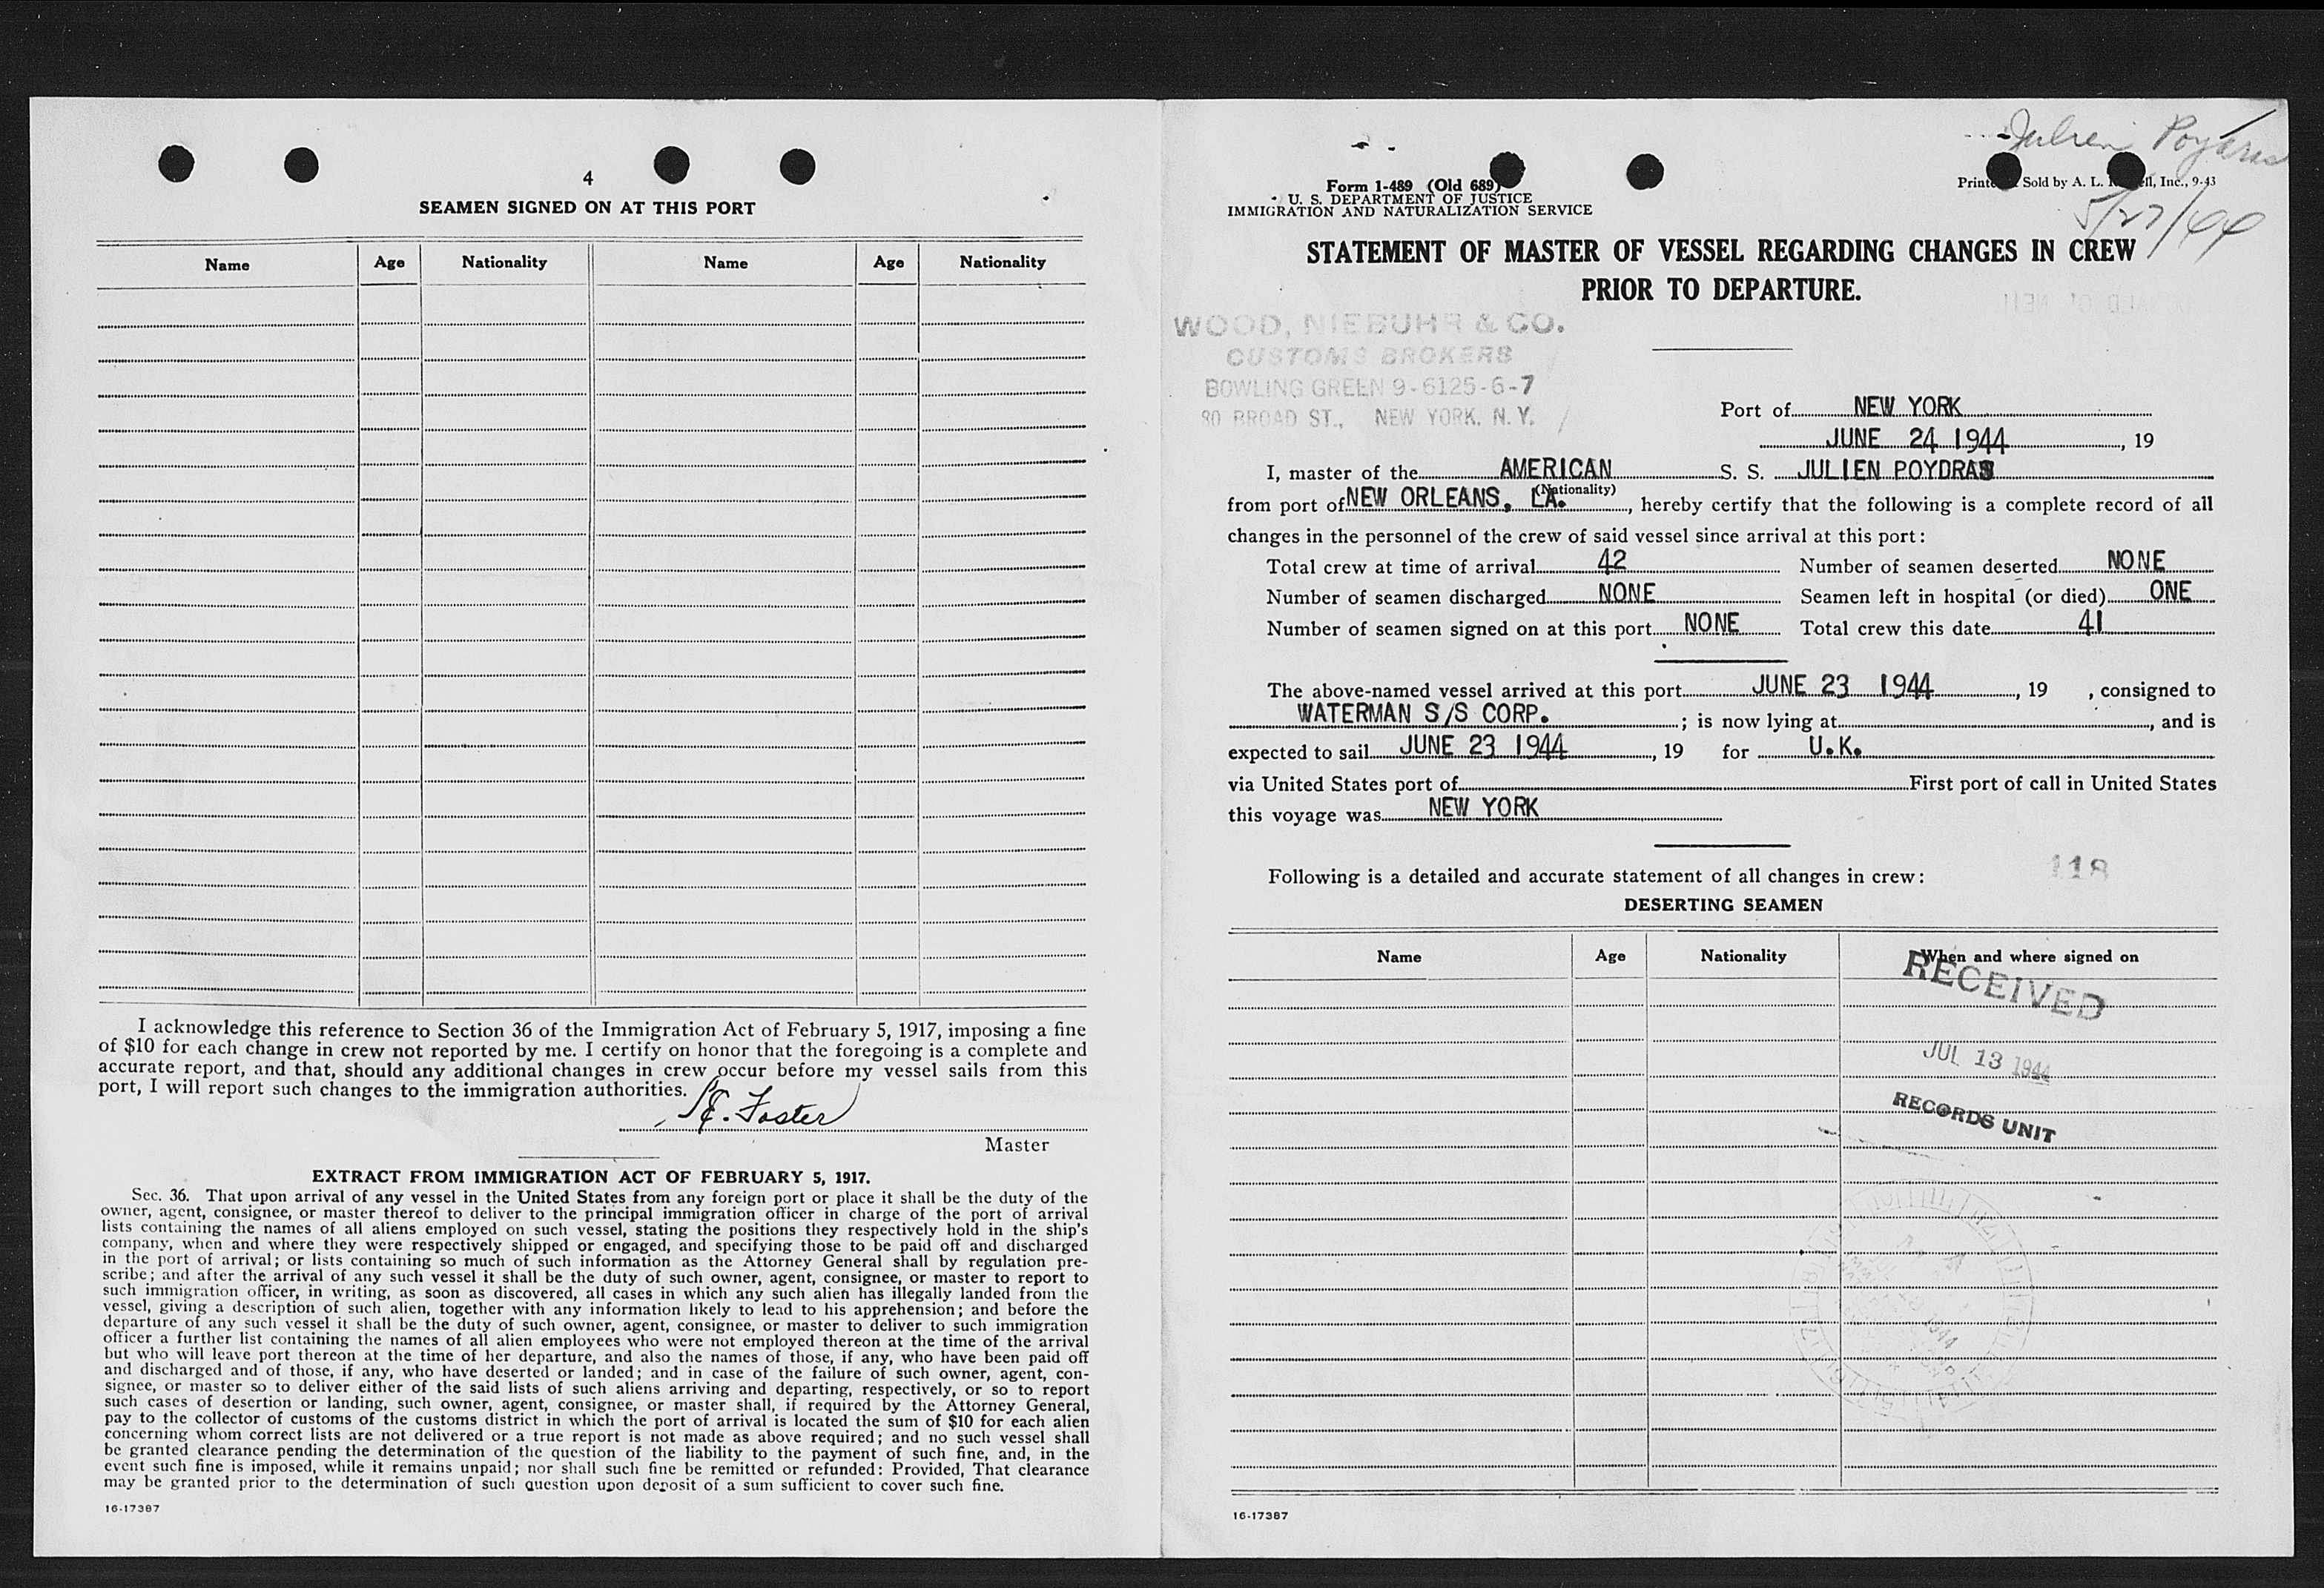 4
SEAMEN SIGNED ON AT THIS PORT
Name Age Nationality Name Age Nationality
I acknowledge this reference to Section 36 of the Immigration Act of February 5, 1917, imposing a fine
of $10 for each change in crew not reported by me. I certify on honor that the foregoing is a complete and
accurate report, and that, should any additional changes in crew occur before my vessel sails from this
port, I will report such changes to the immigration authorities.
E. Foster
Master
EXTRACT FROM IMMIGRATION ACT OF FEBRUARY 5, 1917.
Sec. 36. That upon arrival of any vessel in the United States from any foreign port or place it shall be the duty of the
owner, agent, consignee, or master thereof to deliver to the principal immigration officer in charge of the port of arrival
lists containing the names of all aliens employed on such vessel, stating the positions they respectively hold in the ship's
company, when and where they were respectively shipped or engaged, and specifying those to be paid off and discharged
in the port of arrival; or lists containing so much of such information as the Attorney General shall by regulation pre-
scribe; and after the arrival of any such vessel it shall be the duty of such owner, agent, consignee, or master to report to
such immigration officer, in writing, as soon as discovered, all cases in which any such alien has illegally landed from the
vessel, giving a description of such alien, together with any information likely to lead to his apprehension; and before the
departure of any such vessel it shall be the duty of such owner, agent, consignee, or master to deliver to such immigration
officer a further list containing the names of all alien employees who were not employed thereon at the time of the arrival
but who will leave port thereon at the time of her departure, and also the names of those, if any, who have been paid off
and discharged and of those, if any, who have deserted or landed; and in case of the failure of such owner, agent, con-
signee, or master so to deliver either of the said lists of such aliens arriving and departing, respectively, or so to report
such cases of desertion or landing, such owner, agent, consignee, or master shall, if required by the Attorney General,
pay to the collector of customs of the customs district in which the port of arrival is located the sum of $10 for each alien
concerning whom correct lists are not delivered or a true report is not made as above required; and no such vessel shall
be granted clearance pending the determination of the question of the liability to the payment of such fine, and, in the
event such fine is imposed, while it remains unpaid; nor shall such fine be remitted or refunded: Provided, That clearance
may be granted prior to the determination of such question upon deposit of a sum sufficient to cover such fine.
16-17387
Julien Poydras
5/27/44
Form 1-489 (Old 689)
U. S. DEPARTMENT OF JUSTICE
IMMIGRATION AND NATURALIZATION SERVICE
Sold by A. L. Inc., 9-43
STATEMENT OF MASTER OF VESSEL REGARDING CHANGES IN CREW
PRIOR TO DEPARTURE.
WOOD, NIEBUHR & CO.
CUSTOMS BROKERS
BOWLING GREEN 9-6125-6-7
80 BROAD ST., NEW YORK, N. Y.
Port of NEW YORK
JUNE 24 1944, 19
I, master of the AMERICAN S. S. JULIEN POYDRAS
(Nationality)
from port of NEW ORLEANS, LA., hereby certify that the following is a complete record of all
changes in the personnel of the crew of said vessel since arrival at this port:
Total crew at time of arrival 42 Number of seamen deserted NONE
Number of seamen discharged NONE Seamen left in hospital (or died) ONE
Number of seamen signed on at this port NONE Total crew this date 41
The above-named vessel arrived at this port JUNE 23 1944, 19 , consigned to
WATERMAN S/S CORP. ; is now lying at , and is
expected to sail JUNE 23 1944, 19 for U.K.
via United States port of First port of call in United States
this voyage was NEW YORK
118
Following is a detailed and accurate statement of all changes in crew:
DESERTING SEAMEN
Name Age Nationality When and where signed on
RECEIVED
JUL 13 1944
RECORDS UNIT
16-17387